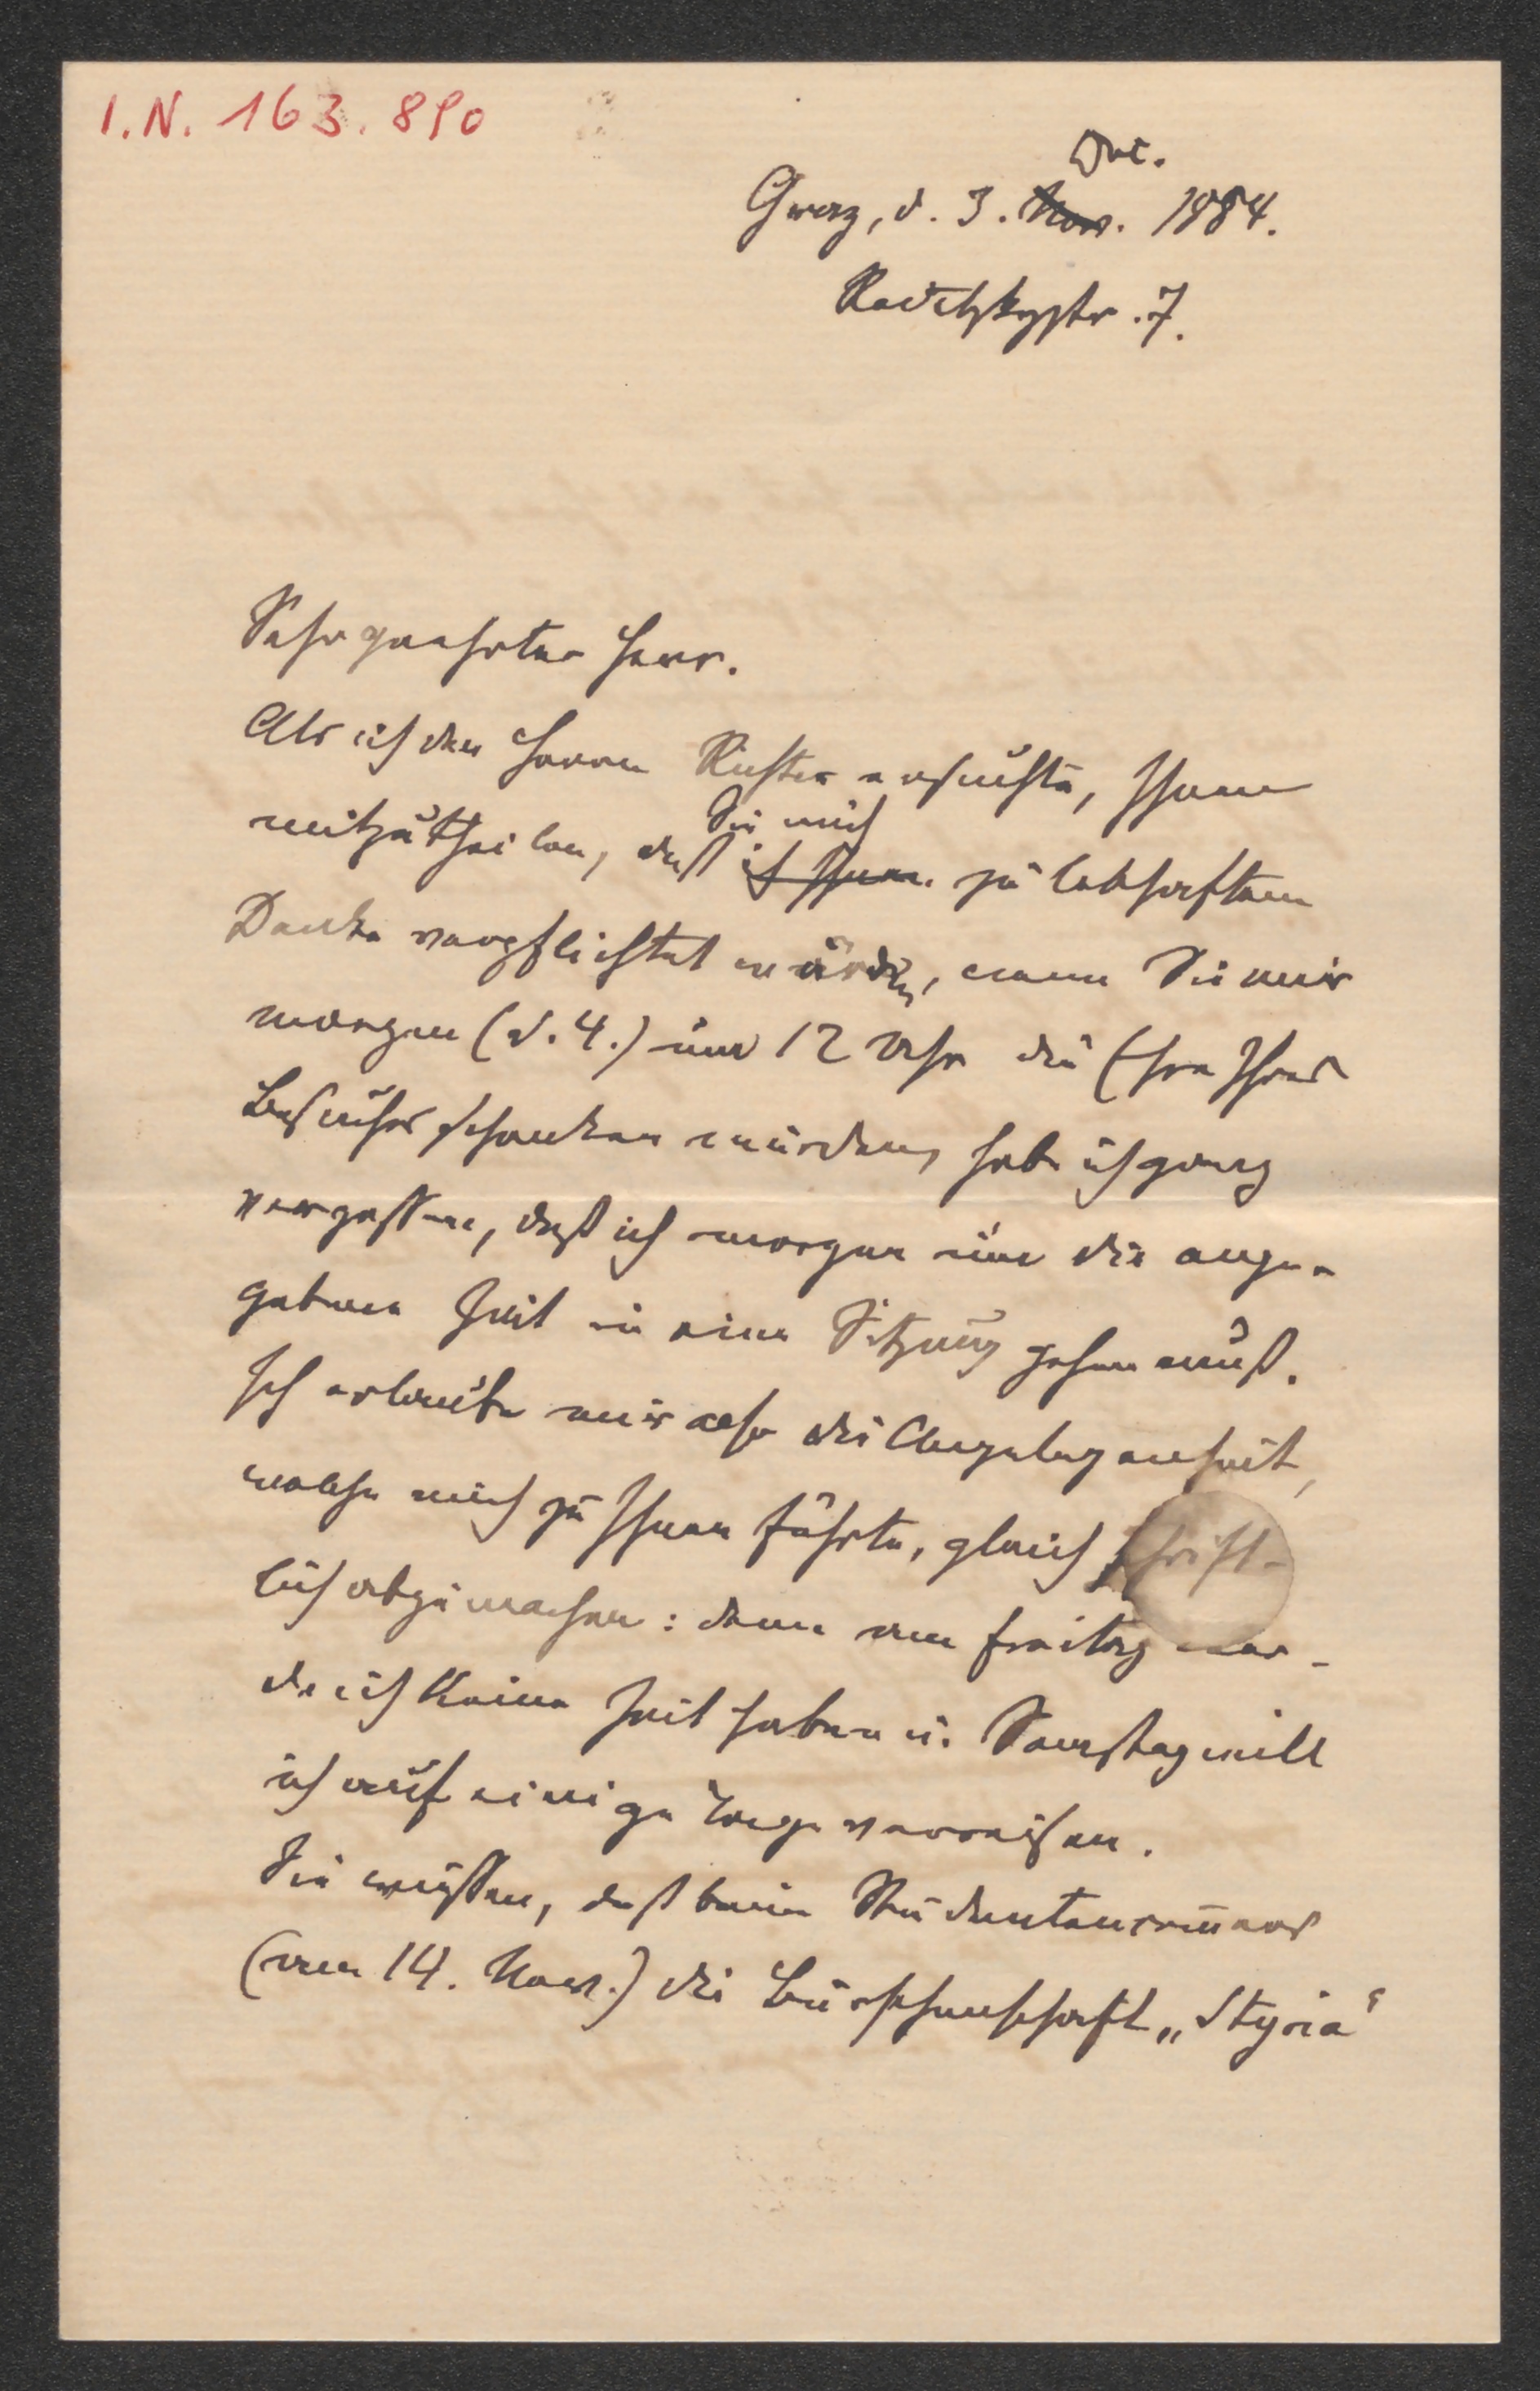 I.N. 163.890
Dec.
Graz, d. 3. Nov. 1884.
Radetzkystr. 7.
Sehr geehrter Herr.
Als ich den Herrn Richter ersuchte, Ihnen
Sie mich
mitzutheilen, daß ich Ihnen zu lebhaftem
Danke verpflichtet würden, wenn Sie mir
morgen (d. 4.) um 12 Uhr die Ehre Ihres
Besuches schenken würden, hab ich ganz
vergessen, daß ich morgen um die ange-
gebene Zeit in eine Sitzung gehen muß.
Ich erlaube mir also die Angelegenheit,
welche mich zu Ihnen führte, gleich schrift-
lich abzumachen: denn am Freitag wer-
de ich keine Zeit haben u. Samstag will
ich auf einige Tage verreisen.
Sie wissen, daß beim Studentencommers
(am 14. Nov.) die Burschenschaft „Styria“